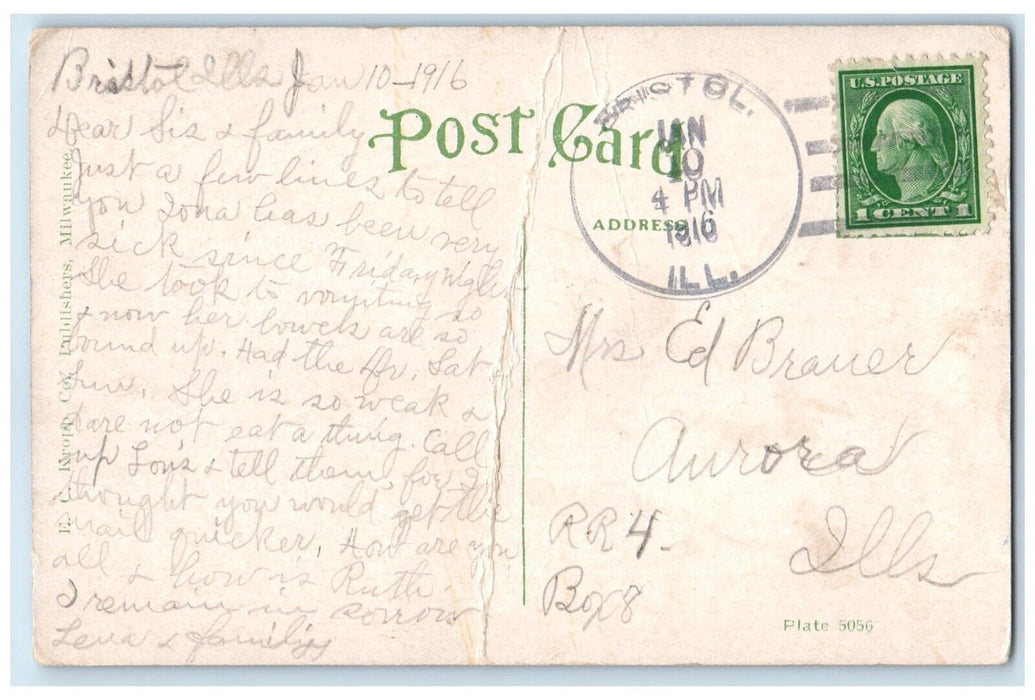 Bristol Ills Jan 10-1916
Dear Sis & family
Just a few lines to tell
you Iona has been very
sick since Friday night
She took to vomiting so
& now her bowels are so
bound up. Had the Dr, Sat &
Sun, She is so weak &
dare not eat a thing. Call
up Lou's & tell them, for I
thought you would get the
mail quicker, How are you
all & how is Ruth
I remain in sorrow
Lena & family
E. C. Kropp Co., Publishers, Milwaukee
Post Card
ADDRESS
BRISTOL,
JAN
10
4 PM
1916
ILL.
U.S. POSTAGE
1 CENT 1
Mrs Ed Brauer
Aurora
RR 4-
Ills
Box 8
Plate 5056